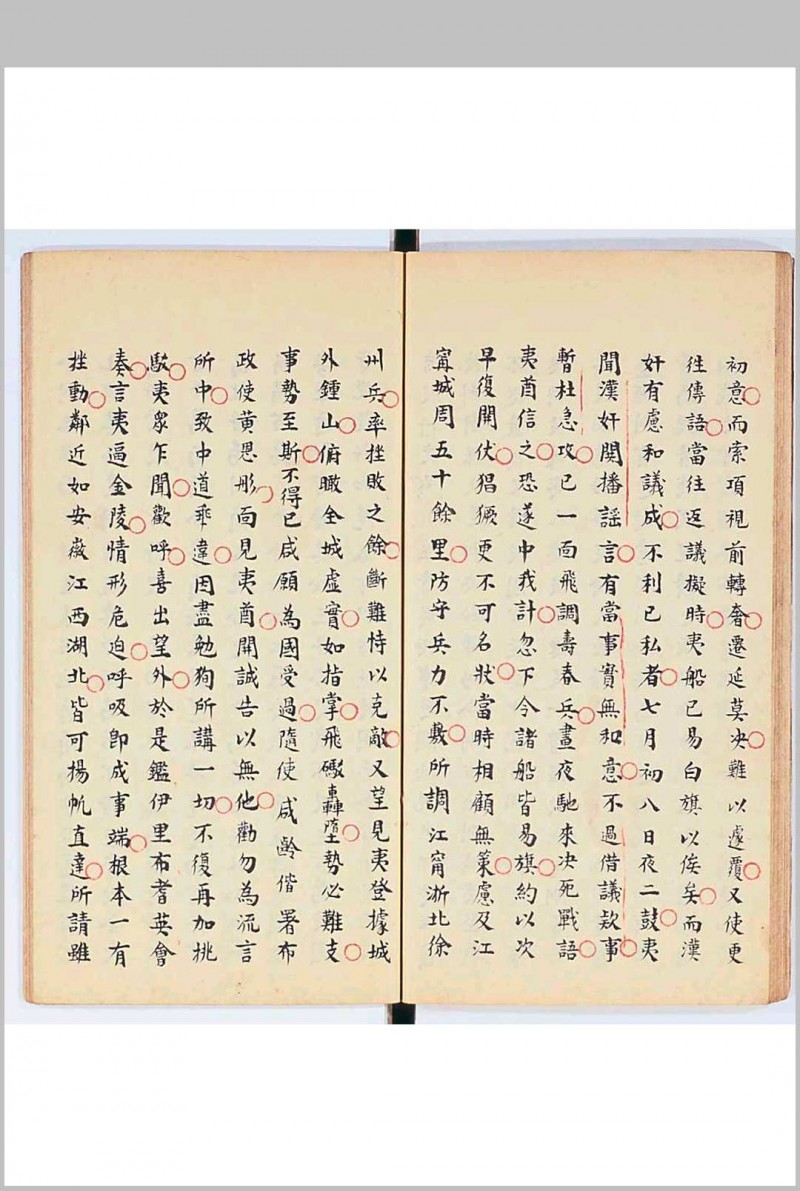 初意而索項視前轉奢遷延莫决難以遽覆又使更
徃傳語當往返議擬時夷船已易白旗以俟矣而漢
奸有慮和議成不利已私者七月初八日夜二鼓夷
聞漢奸閧播謡言有當事實無和意不過借議欵事
暫杜急攻已一面飛調壽春兵晝夜馳來决死戰語
夷酋信之恐遂中我計忽下令諸船皆易旗約以次
早復開伏猖獗更不可名狀當時相顧無策慮及江
甯城周五十餘里防守兵力不敷所調江甯浙北徐
州兵率挫敗之餘斷難恃以克敵又望見夷登據城
外鍾山俯瞰全城虚實如指掌飛礮轟墮勢必難支
事勢至斯不得已咸願為國受過隨使咸齡偕署布
政使黄恩彤面見夷酋開誠告以無他勸勿為流言
所中致中道乖違因盡勉狥所講一切不復再加挑
駁夷衆乍聞歡呼喜出望外於是鑑伊里布耆英會
奏言夷逼金陵情形危迫呼吸卽成事端根本一有
挫動鄰近如安徽江西湖北皆可揚帆直達所請雖